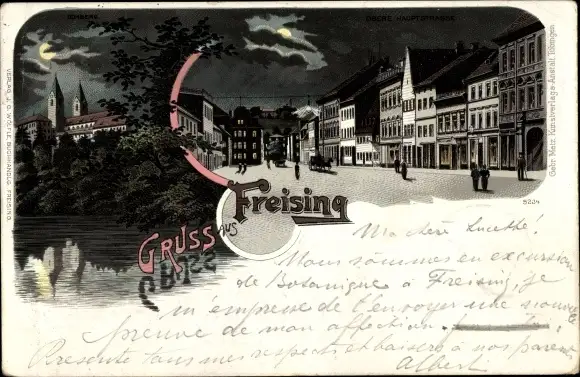 DOMBERG
OBERE HAUPTSTRASSE
VERLAG J.G. WÖLFLE, BUCHHANDLG. FREISING.
Gebr. Metz, Kunstverlags-Anstalt, Tübingen
5224
GRUSS AUS
Freising
Ma chère Lucette!
Nous sommes en excursion
de Botanique à Freising, je
m'empresse de t'envoyer une nouvelle
preuve de mon affection.
Présente tous mes respects et baisers à nos parents
Albert